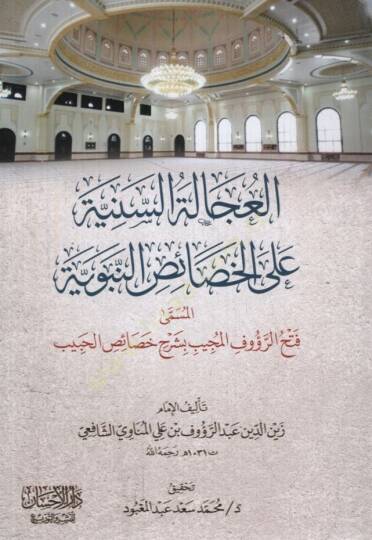 العُجَالَةُ السَّنِيَّة
عَلَى الخَصَائِصِ النَّبَوِيَّة
المُسَمَّى
فَتْحُ الرَّؤُوفِ المُجِيبِ بِشَرْحِ خَصَائِصِ الحَبِيبِ
تَأليفُ الإِمَام
زَيْن الدِّين عَبد الرَّؤُوف بن عَلي المُنَاوِي الشَّافِعي
ت ١٠٣١ هـ رَحِمَهُ اللهُ
تحقيق
د/ مُحَمَّد سَعد عَبد المَعْبُود
دار الإحسان
للنشر والتوزيع